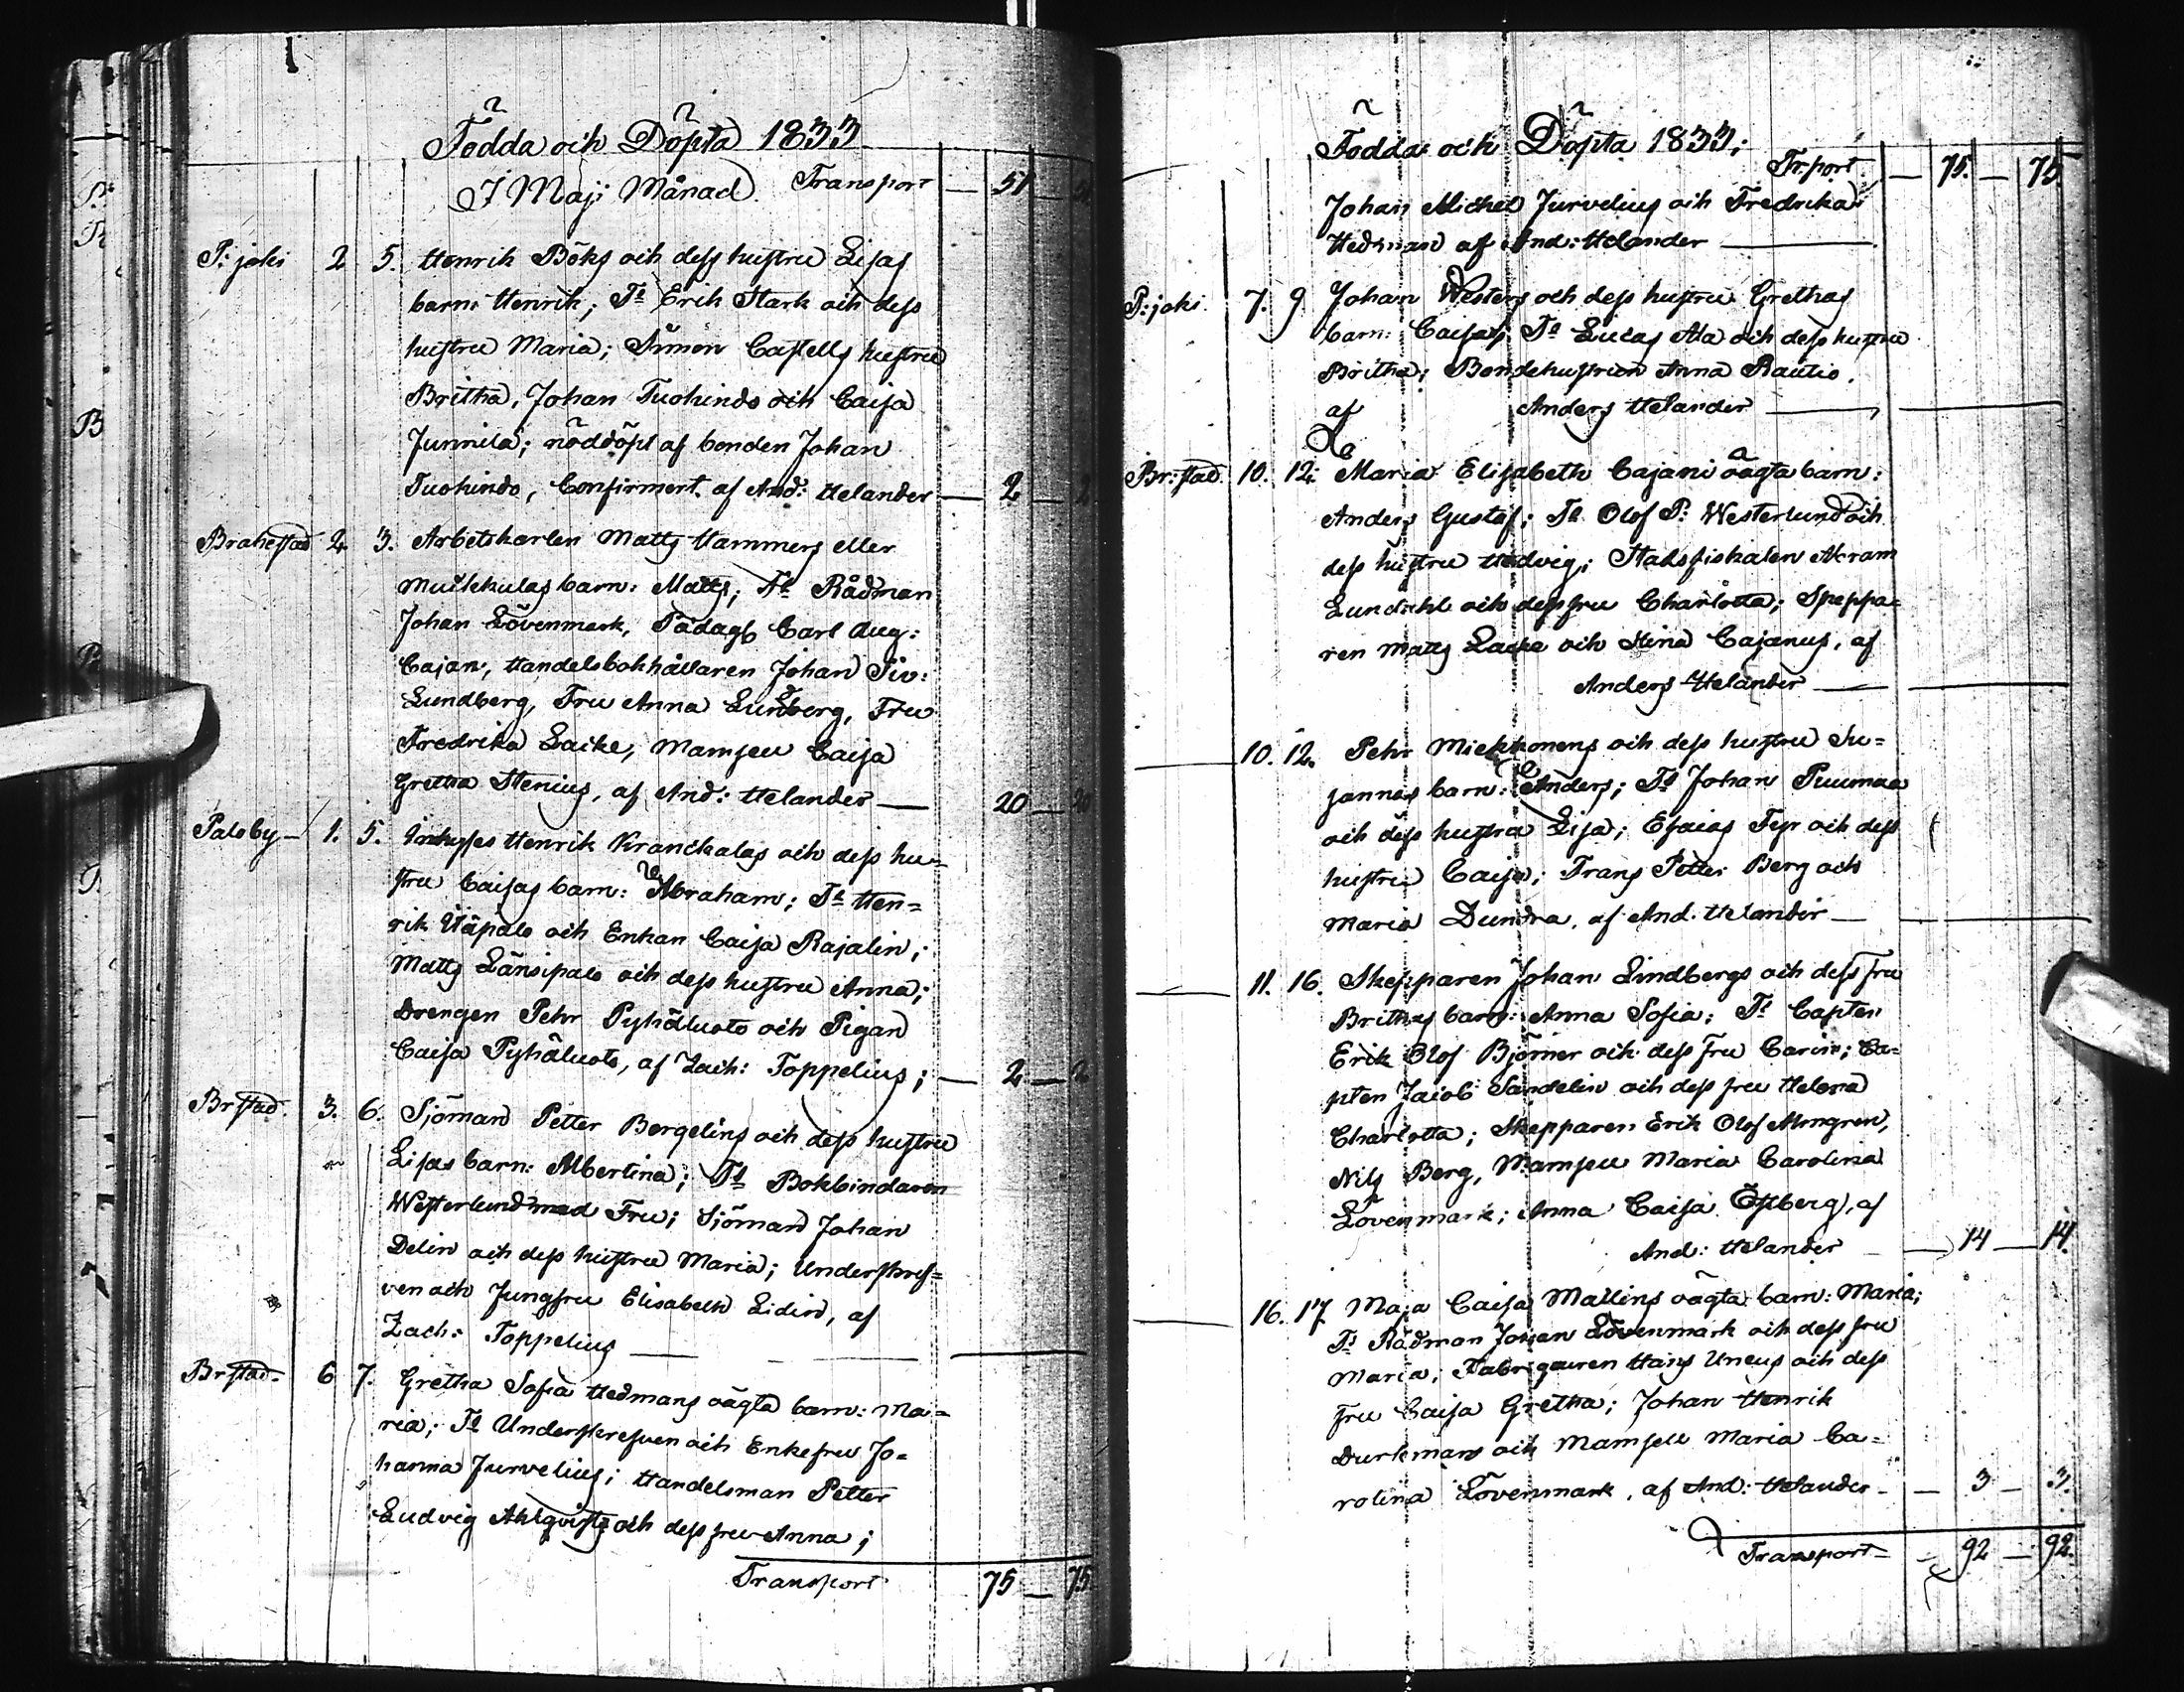 Födda och Döpta 1833
I Maji Månad. Transport — 51
P: joki 2 5. Henrik Böks och dess hustru Lisas
barn: Henrik; Ts Erik Stark och dess
hustru Maria; Simon Castells hustru
Britha, Johan Tuohindo och Caisa
Junnila; nöddöpt af bonden Johan
Tuohindo, Confirmert. af And: Helander — 2 — 2
Brahestad 2. 3. Arbetskarlen Matts Hammers eller
barn: Matts; Ts Rådman
Johan Lövenmark, Pädag. Carl Aug:
Cajan, Handelsbokhållaren Johan
Lundberg, Fru Anna Lundberg, Fru
Fredrika Laike, Mamsell Caisa
Gretha Stenius, af And: Helander — 20 — 20
Paloby — 1. 5. Inhyses Henrik Kranckalas och dess hu=
stru Caisas barn: Abraham; Ts Hen=
rik och Enkan Caisa Rajalin;
Matts Länsipalo och dess hustru Anna;
Drengen Pehr Pyhäluoto och Pigan
Caisa Pyhäluoto, af Zach: Toppelius; — 2 — 2
Br.stad. 3. 6. Sjöman Petter Bergelins och dess hustru
Lisas barn: Albertina; Ts Bokbindaren
Westerlund med Fru; Sjöman Johan
Delin och dess hustru Maria; Underskref=
ven och Jungfru Elisabeth Lidin, af
Zach: Toppelius —
Br.stad. 6 7. Gretha Sofia Hedmans oägta barn: Ma=
ria; Ts Underskrefven och Enkefru Jo=
hanna Jurvelius; Handelsman Petter
Ludvig Ahlqvist och dess fru Anna;
Transport 75 — 75
Födda och Döpta 1833;
Tr.port — 75. — 75.
Johan Michel Jurvelius och Fredrika
Hedman af And: Helander —
P: joki. 7. 9 Johan Westers och dess hustru Grethas
barn: Caisa; Ts Lucas Ala och dess hustru
Britha; Bondehustrun Anna Rautio.
af Anders Helander —
Br: stad. 10. 12. Maria Elisabeth Cajani oägta barn:
Anders Gustaf; Ts Olof P: Westerlund och
dess hustru Hedvig; Stadsfiskalen Abram
Lundahl och dess fru Charlotta; Skeppa=
ren Matts Laike och Stina Cajanus, af
Anders Helander —
— 10. 12. Pehr Miekkonens och dess hustru Su=
sannas barn: Anders; Ts Johan Puumaa
och dess hustru Lisa; Esaias Fyr och dess
hustru Caisa; Frans Petter Berg och
Maria Dundra, af And. Helander —
— 11. 16. Skepparen Johan Lindbergs och dess fru
Brithas barn: Anna Sofia; Ts Capten
Erik Olof Björner och dess fru Carin; Ca=
pten Jacob Sandelin och dess fru Helena
Charlotta; Skepparen Erik Olof Almgren,
Nils Berg, Mamsell Maria Carolina
Lövenmark; Anna Caisa Östberg, af
And: Helander — 14 — 14.
16. 17. Maja Caisa Mallins oägta barn: Maria;
Ts Rådman Johan Lövenmark och dess fru
Maria; Fabriqueuren Hans Uneus och dess
fru Caisa Gretha; Johan Henrik
Durkman och Mamsell Maria Ca=
rolina Lövenmark, af And: Helander — 3 — 3.
Transport — 92 — 92.